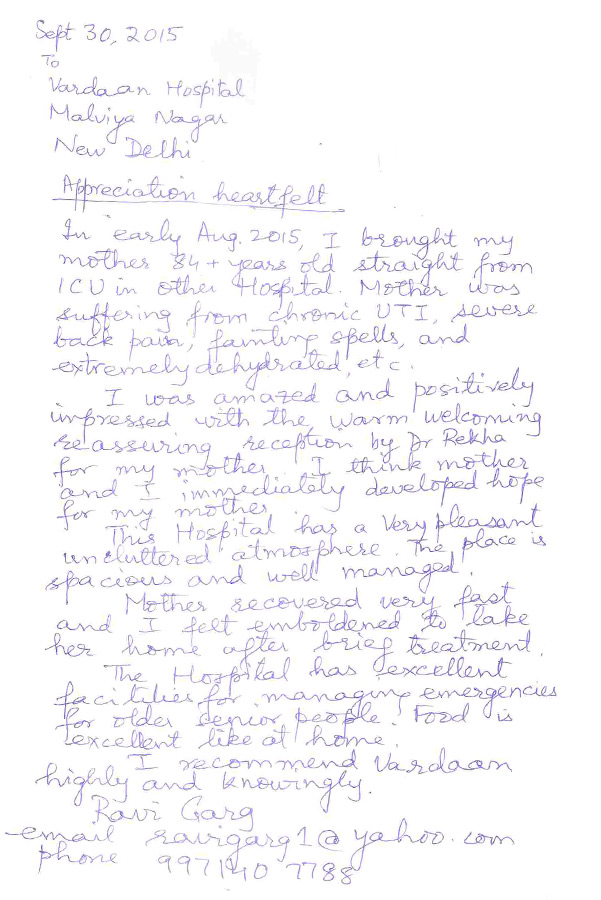 Sept 30, 2015
To
Vardaan Hospital
Malviya Nagar
New Delhi
Appreciation heartfelt
In early Aug. 2015, I brought my
mother 84+ years old straight from
ICU in other Hospital. Mother was
suffering from chronic UTI, severe
back pain, fainting spells, and
extremely dehydrated, etc.
I was amazed and positively
impressed with the warm welcoming
reassuring reception by Dr Rekha
for my mother. I think mother
and I immediately developed hope
for my mother.
This Hospital has a very pleasant
uncluttered atmosphere. The place is
spacious and well managed.
Mother recovered very fast
and I felt emboldened to take
her home after brief treatment.
The Hospital has excellent
facilities for managing emergencies
for older senior people. Food is
excellent like at home.
I recommend Vardaan
highly and knowingly.
Ravi Garg
email ravigarg1@yahoo.com
phone 997140 7788